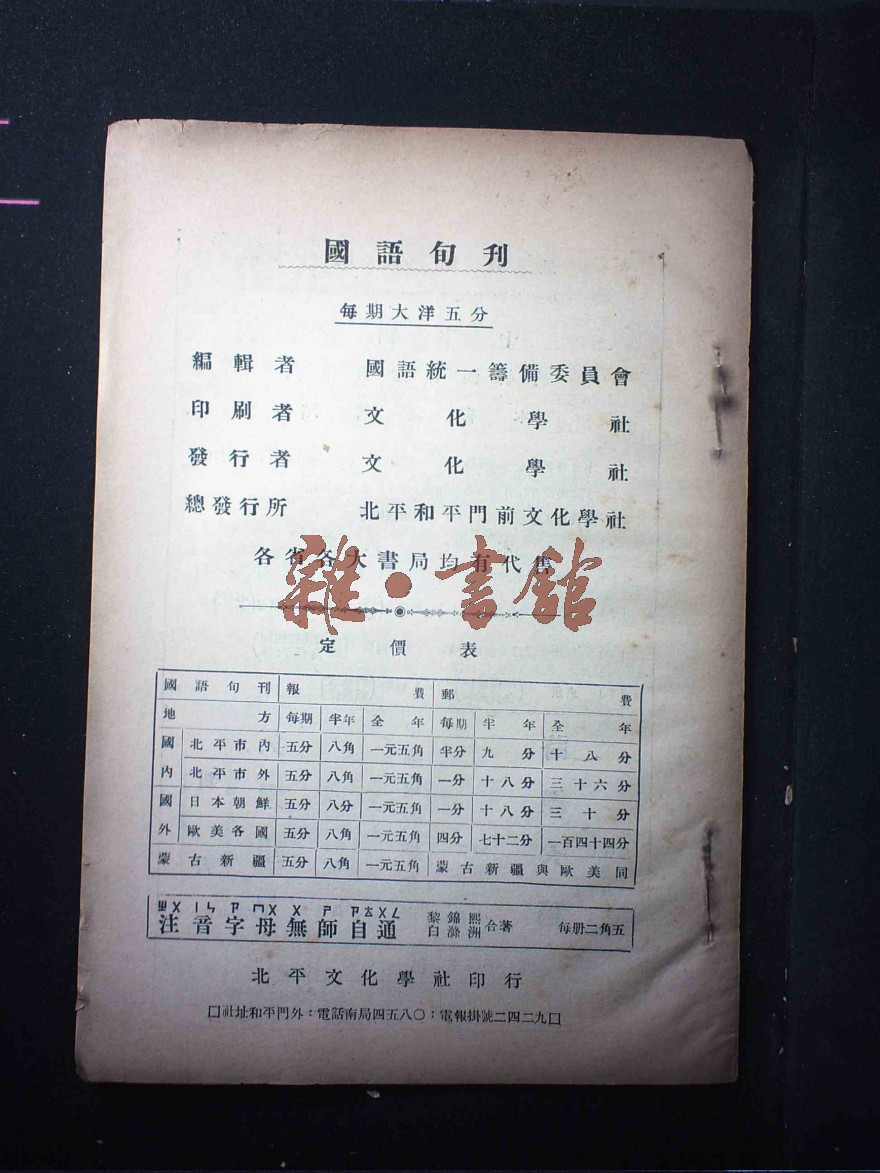 國語旬刊
每期大洋五分
編輯者 國語統一籌備委員會
印刷者 文化學社
發行者 文化學社
總發行所 北平和平門前文化學社
各省各大書局均有代售
雜·書館
定價表
國語旬刊 報費 郵費
地方 每期 半年 全年 每期 半年 全年
國內 北平市內 五分 八角 一元五角 半分 九分 十八分
北平市外 五分 八角 一元五角 一分 十八分 三十六分
國外 日本朝鮮 五分 八分 一元五角 一分 十八分 三十分
歐美各國 五分 八角 一元五角 四分 七十二分 一百四十四分
蒙古新疆 五分 八角 一元五角 蒙古新疆與歐美同
注音字母無師自通 黎錦熙 白滌洲 合著 每册二角五
北平文化學社印行
囗社址和平門外：電話南局四五八〇：電報掛號二四二九囗